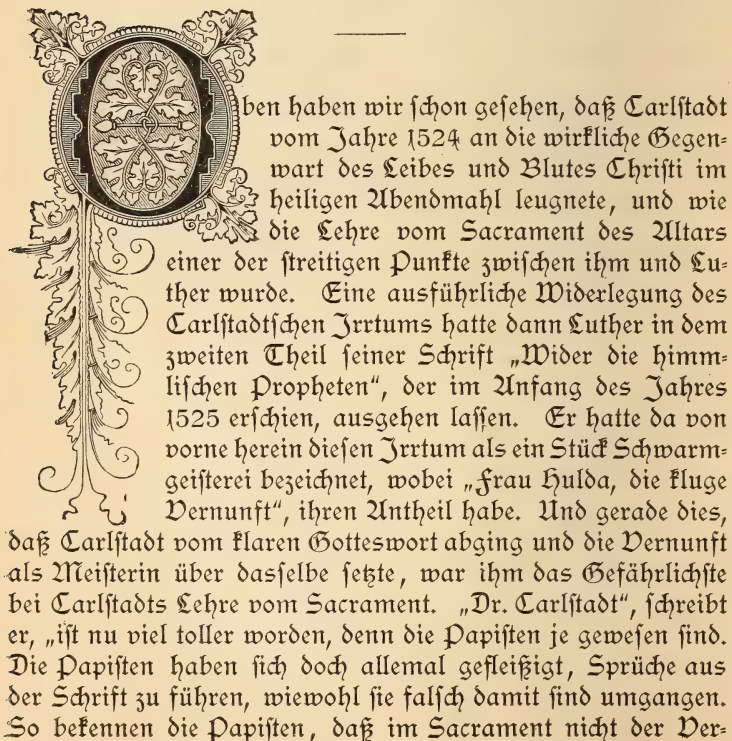 Oben haben wir schon gesehen, daß Carlstadt
vom Jahre 1524 an die wirkliche Gegen=
wart des Leibes und Blutes Christi im
heiligen Abendmahl leugnete, und wie
die Lehre vom Sacrament des Altars
einer der streitigen Punkte zwischen ihm und Lu=
ther wurde. Eine ausführliche Widerlegung des
Carlstadtschen Irrtums hatte dann Luther in dem
zweiten Theil seiner Schrift „Wider die himm=
lischen Propheten“, der im Anfang des Jahres
1525 erschien, ausgehen lassen. Er hatte da von
vorne herein diesen Irrtum als ein Stück Schwarm=
geisterei bezeichnet, wobei „Frau Hulda, die kluge
Vernunft“, ihren Antheil habe. Und gerade dies,
daß Carlstadt vom klaren Gotteswort abging und die Vernunft
als Meisterin über dasselbe setzte, war ihm das Gefährlichste
bei Carlstadts Lehre vom Sacrament. „Dr. Carlstadt“, schreibt
er, „ist nu viel toller worden, denn die Papisten je gewesen sind.
Die Papisten haben sich doch allemal gefleißigt, Sprüche aus
der Schrift zu führen, wiewohl sie falsch damit sind umgangen.
So bekennen die Papisten, daß im Sacrament nicht der Ver=